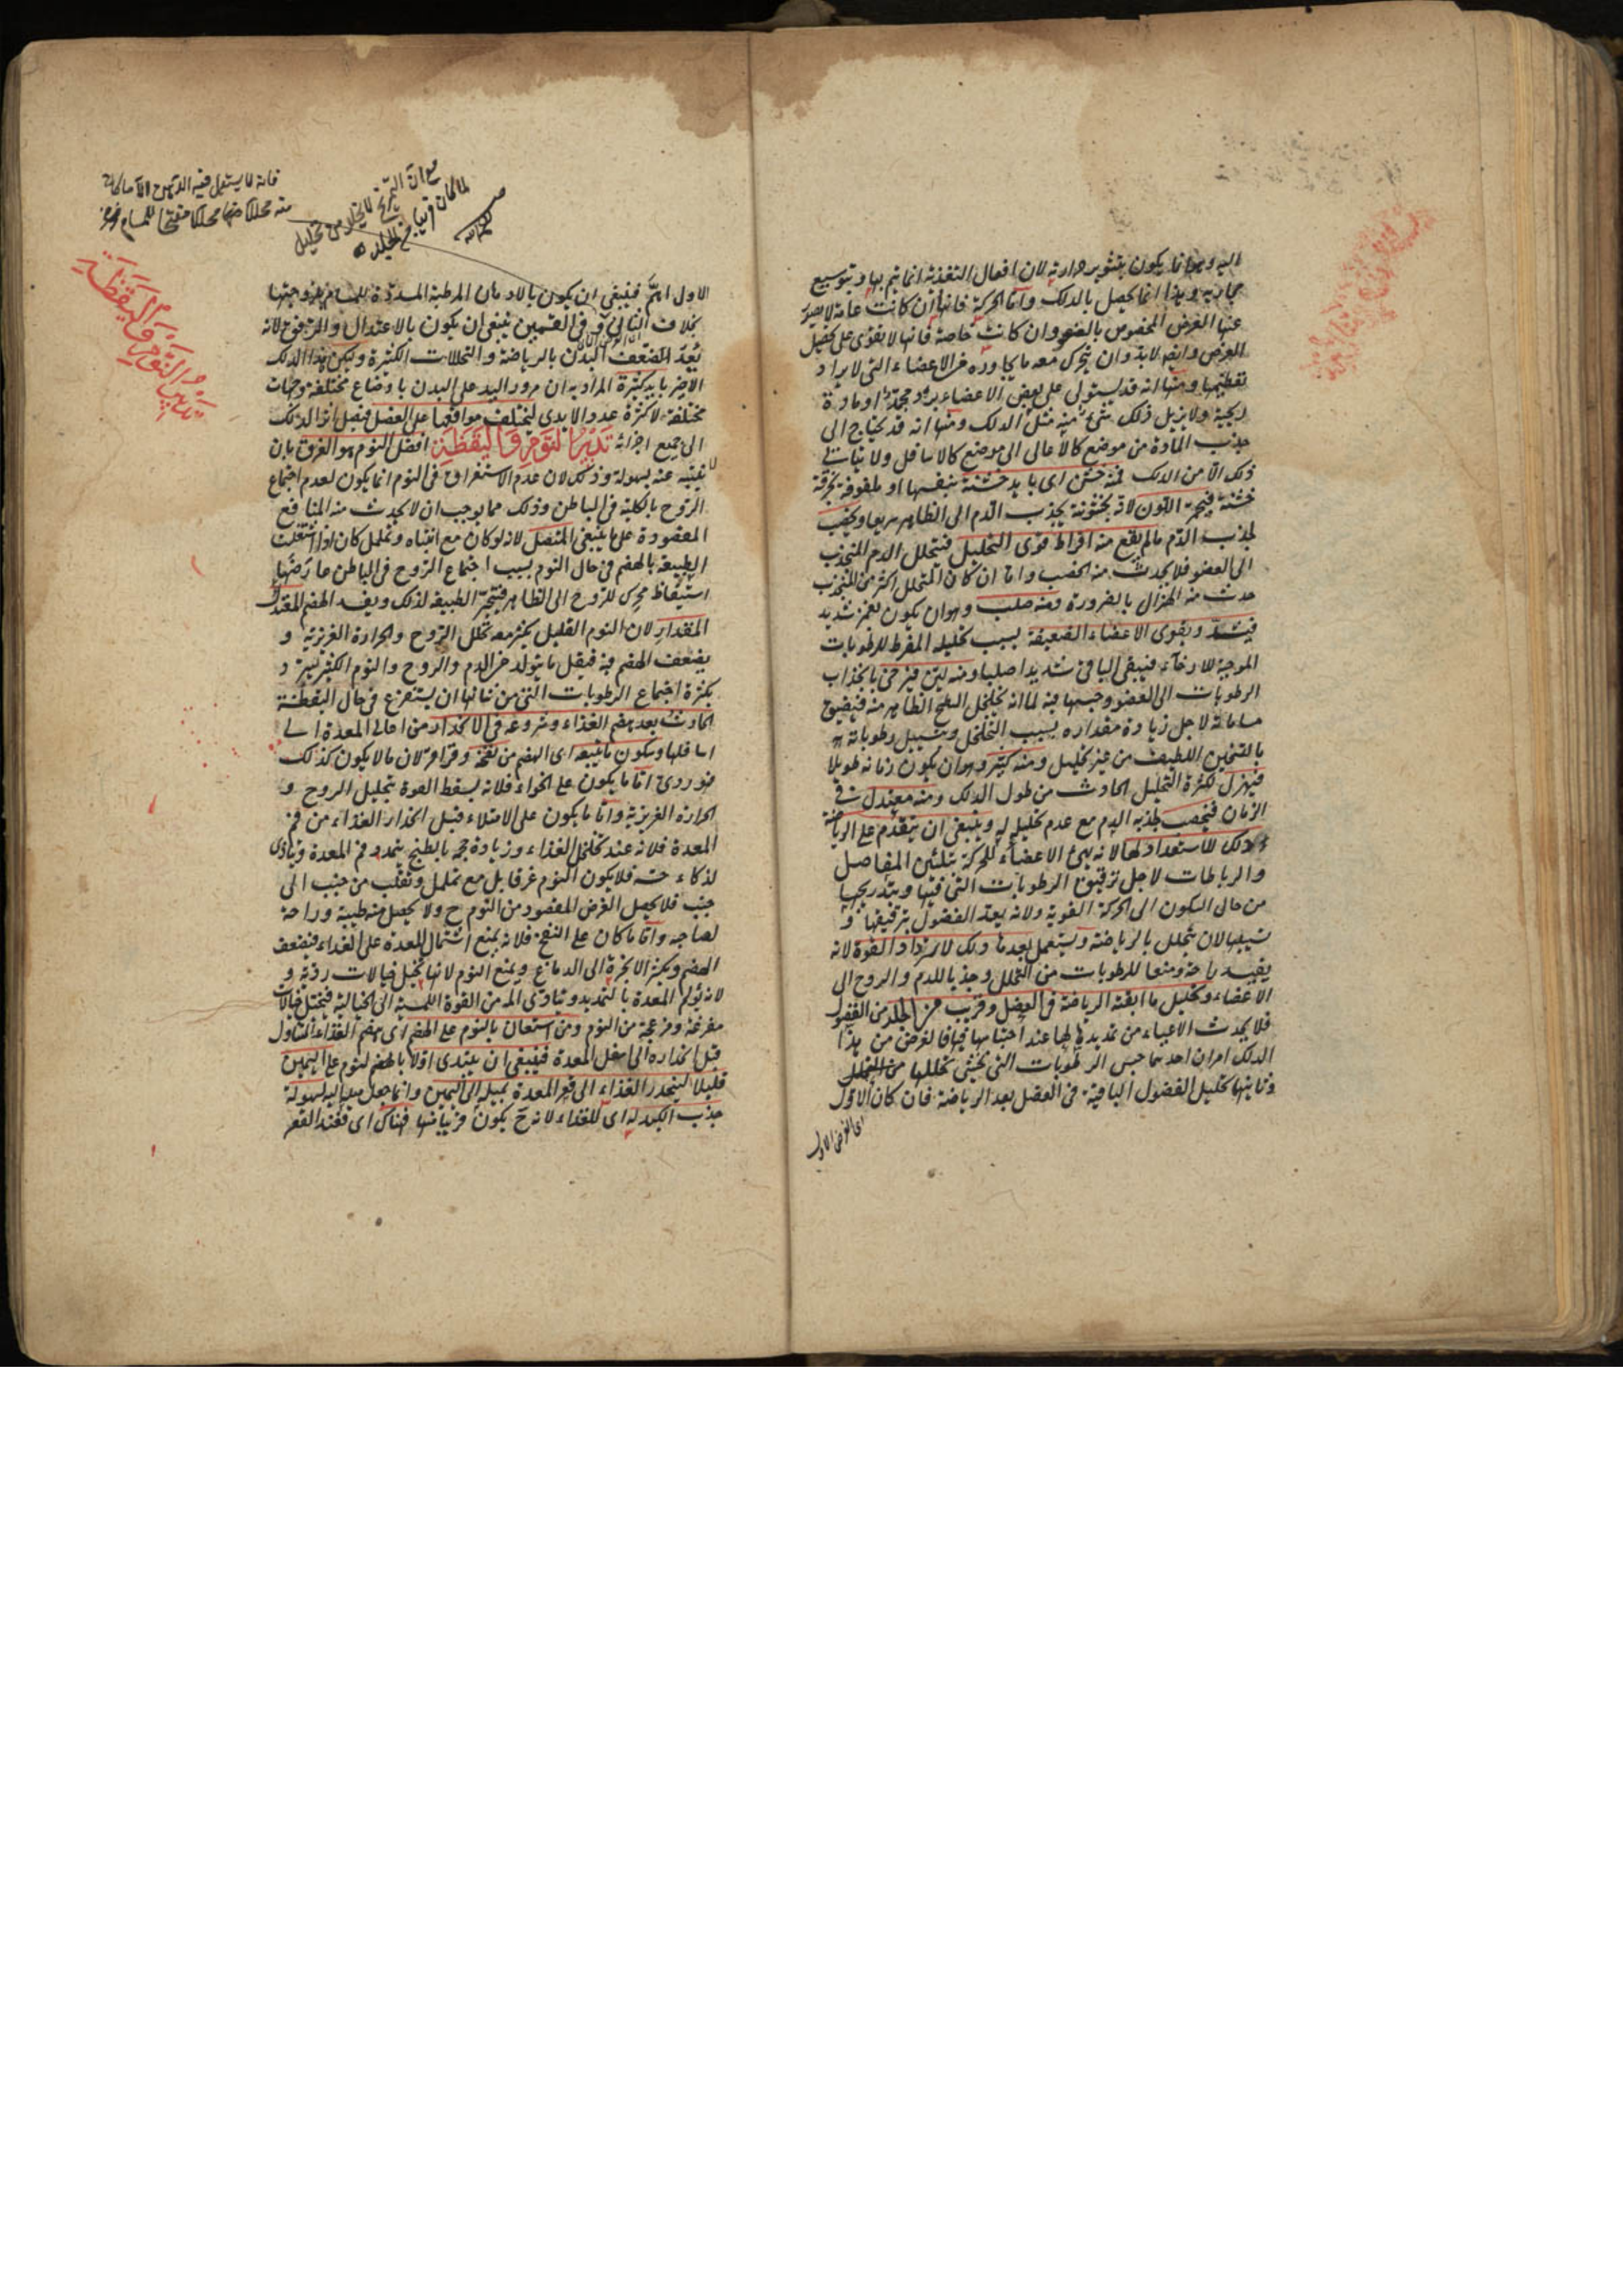 اليه وهو انما يكون بتثوير حرارته لان افعال التغذية انما يتم بها وبتوسيع
مجاريه وهذا انما يحصل بالدلك واما الحركة فانها ان كانت عامة لا يصير
عنها الغرض المخصوص بالعضو وان كانت خاصة فانها لا يقوى على تحصيل
الغرض وايضا لابد وان يتحرك معه ما يجاوره من الاعضاء التي لا يراد
تعظيمها ومنها انه قد يستولي على بعض الاعضاء برد مجمد او مادة
ريحية ولا يزيل ذلك شئ مثل الدلك ومنها انه قد يحتاج الى
جذب المادة من موضع كالاعالي الى موضع كالاسافل ولا يتاتى
ذلك الا من الدلك فمنه خشن اى بايد خشنة بنفسها او ملفوفة بخرقة
خشنة فيحمر اللون لانه بخشونته يجذب الدم الى الظاهر سريعا ويخصب
لجذب الدم ما لم يقع منه افراط قوى التحليل فيتحلل الدم المنجذب
الى العضو فلا يحدث منه الخصب واما ان كان المتحلل اكثر من المنجذب
حدث منه الهزال بالضرورة ومنه صلب وهو ان يكون بغمز شديد
فيشد ويقوى الاعضاء الضعيفة بسبب تحليله المفرط للرطوبات
الموجبة للارخاء فيبقى الباقى شديدا صلبا ومنه لين فيرخى بانجذاب
الرطوبات الى العضو وحبسها فيه لما انه يخلخل السطح الظاهر منه فيضيق
مساماته لاجل زيادة مقداره بسبب التخلخل ويسيل رطوباته
بالتسخين اللطيف من غير تحليل ومنه كثير وهو ان يكون زمانه طويلا
فيهزل لكثرة التحليل الحادث من طول الدلك ومنه معتدل في
الزمان فيخصب لجذبه الدم مع عدم تحليله له وينبغى ان يتقدم على الرياضة
دلك للاستعداد لها لانه يهيئ الاعضاء للحركة بتليين المفاصل
والرباطات لاجل ترقيق الرطوبات التى فيها وبتدريجها
من حال السكون الى الحركة القوية ولانه يعد الفضول بترقيقها و
تسييلها لان يتحلل بالرياضة ويستعمل بعدها دلك لاسترداد القوة لانه
يفيد راحة ومنعا للرطوبات من التحلل وجذبا للدم والروح الى
الاعضاء وتحليل ما ابقته الرياضة في العضل وقريب من الجلد من الفضول
فلا يحدث الاعياء من تمديدها لها عند احتباسها فيها فالغرض من هذا
الدلك امران احدهما حبس الرطوبات التى يخشى تحللها من التحلل
وثانيها تحليل الفضول الباقية في العضل بعد الرياضة فان كان الاول
اى الغرض الاول
فانه لا يستعمل فيه الدهن الا ما كان
منه محللا مفتحا للمسام
الاول اهم فينبغى ان يكون بالادهان المرطبة المسددة للمسام بلزوجتها
بخلاف الثانى وفى القسمين ينبغى ان يكون بالاعتدال والرفق لانه
بعد تضعف البدن بالرياضة والتحللات الكثيرة وليكن هذا الدلك
الاخير بايد كثيرة المراد به ان مرور اليد على البدن باوضاع مختلفة وجهات
مختلفة لا كثرة عدد الايدى لتختلف مواقعها على العضل فيصل اثر الدلك
الى جميع اجزائه تَدْبِيرُ النَّومِ وَاليَقْظَةِ افضل النوم هو الغرق بان
لا ينتبه عنه بسهولة وذلك لان عدم الاستغراق في النوم انما يكون لعدم اجتماع
الروح بالكلية في الباطن وذلك مما يوجب ان لا يحدث منه المنافع
المقصودة على ما ينبغى المتصل لانه لو كان مع انتباه وتململ كان اذا اشتغلت
الطبيعة بالهضم في حال النوم بسبب اجتماع الروح في الباطن عارضها
استيقاظ محرك للروح الى الظاهر فتتحير الطبيعة لذلك ويفسد الهضم المعتدل
المقدار لان النوم القليل يكثر معه تحلل الروح والحرارة الغريزية و
يضعف الهضم فيه فيقل ما يتولد من الدم والروح والنوم الكثير يبرد
بكثرة اجتماع الرطوبات التى من شانها ان يستفرغ في حال اليقظة
الحادث بعد هضم الغذاء وشروعه في الانحدار من اعالى المعدة الى
اسافلها وسكون ما يتبعه اى الهضم من نفخة وقراقر لان ما لا يكون كذلك
فهو ردى اما ما يكون على الخواء فلانه يسقط القوة بتحليل الروح و
الحرارة الغريزية واما ما يكون على الامتلاء قبل انحدار الغذاء من فم
المعدة فلانه عند تخلخل الغذاء وزيادة حجمه بالطبخ يتمدد فم المعدة ويتاذى
لذكاء حسه فلا يكون النوم غرقا بل مع تململ وتقلب من جنب الى
جنب فلا يحصل الغرض المقصود من النوم ح ولا يحصل منه طيبة وراحة
لصاحبه واما ما كان على النفخ فلانه يمنع اشتمال المعدة على الغذاء فيضعف
الهضم ويكثر الابخرة الى الدماغ ويمنع النوم لانها تخيل خيالات ردية و
لانه يؤلم المعدة بالتمديد ويتادى المه من القوة اللمسية الى الخيالية فيتخيل خيالات
مفزعة ومزعجة من النوم ومن استعان بالنوم على الهضم اى هضم الغذاء المتناول
قبل انحداره الى اسفل المعدة فينبغى ان يبتدى اولا بالهضم لنوم على اليمين
قليلا لينحدر الغذاء الى قعر المعدة لميله الى اليمين وانما جعل ميله اليه لسهولة
جذب الكبد له اى للغذاء لانه ح يكون قريبا منها فهناك اى فعند القعر
تدبير النوم واليقظة